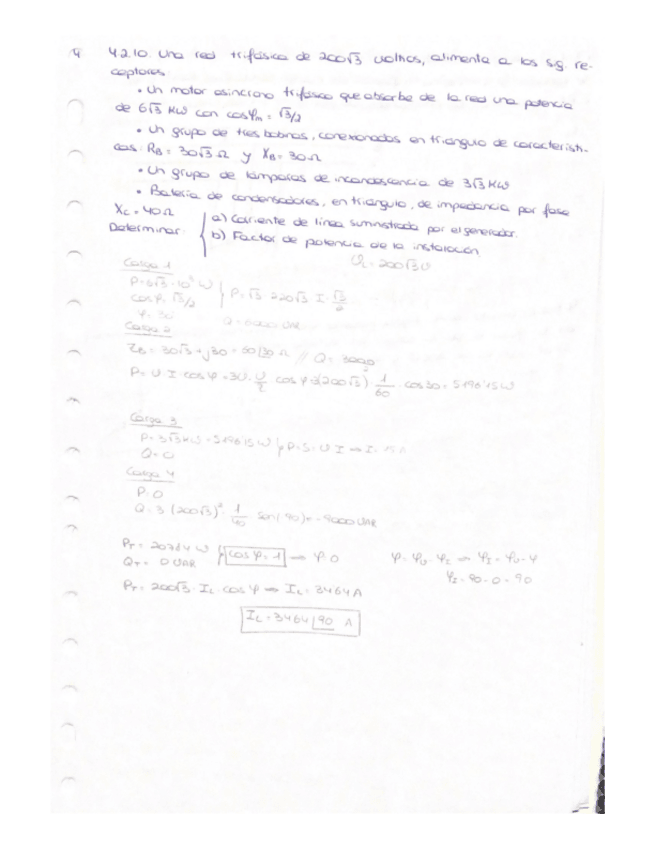 4 4.2.10. Una red trifásica de 200√3 voltios, alimenta a los sig. re-
ceptores.
• Un motor asíncrono trifásico que absorbe de la red una potencia
de 6√3 KW con cosφm = √3/2
• Un grupo de tres bobinas, conexionadas en triángulo de característi-
cas: RB = 30√3 Ω y XB = 30 Ω
• Un grupo de lámparas de incandescencia de 3√3 KW
• Batería de condensadores, en triángulo, de impedancia por fase
XC = 40 Ω
a) Corriente de línea suministrada por el generador
Determinar: b) Factor de potencia de la instalación
UL = 200√3 V
Carga 1
P = 6√3 · 10³ W
cosφ: √3/2 } P = √3 · 220√3 I · √3/2
φ = 30 Q = 6000 VAR
Carga 2
ZB = 30√3 + j30 = 60|30 Ω // Q = 3000
P = U I · cos φ = 3U · U/Z cos φ = 3(200√3)² · 1/60 · cos 30 = 5196'15 W
Carga 3
P = 3√3 KW = 5196'15 W } P = S = U I ⇒ I = 15 A
Q = 0
Carga 4
P = 0
Q = 3 (200√3)² · 1/40 sen(-90) = -9000 VAR
PT = 20784 W } cos φ = 1 ⇒ φ = 0 φ = φU - φI ⇒ φI = φU - φ
QT = 0 VAR φI = 90 - 0 = 90
PT = 200√3 · IL · cos φ ⇒ IL = 34'64 A
IL = 34'64 |90 A